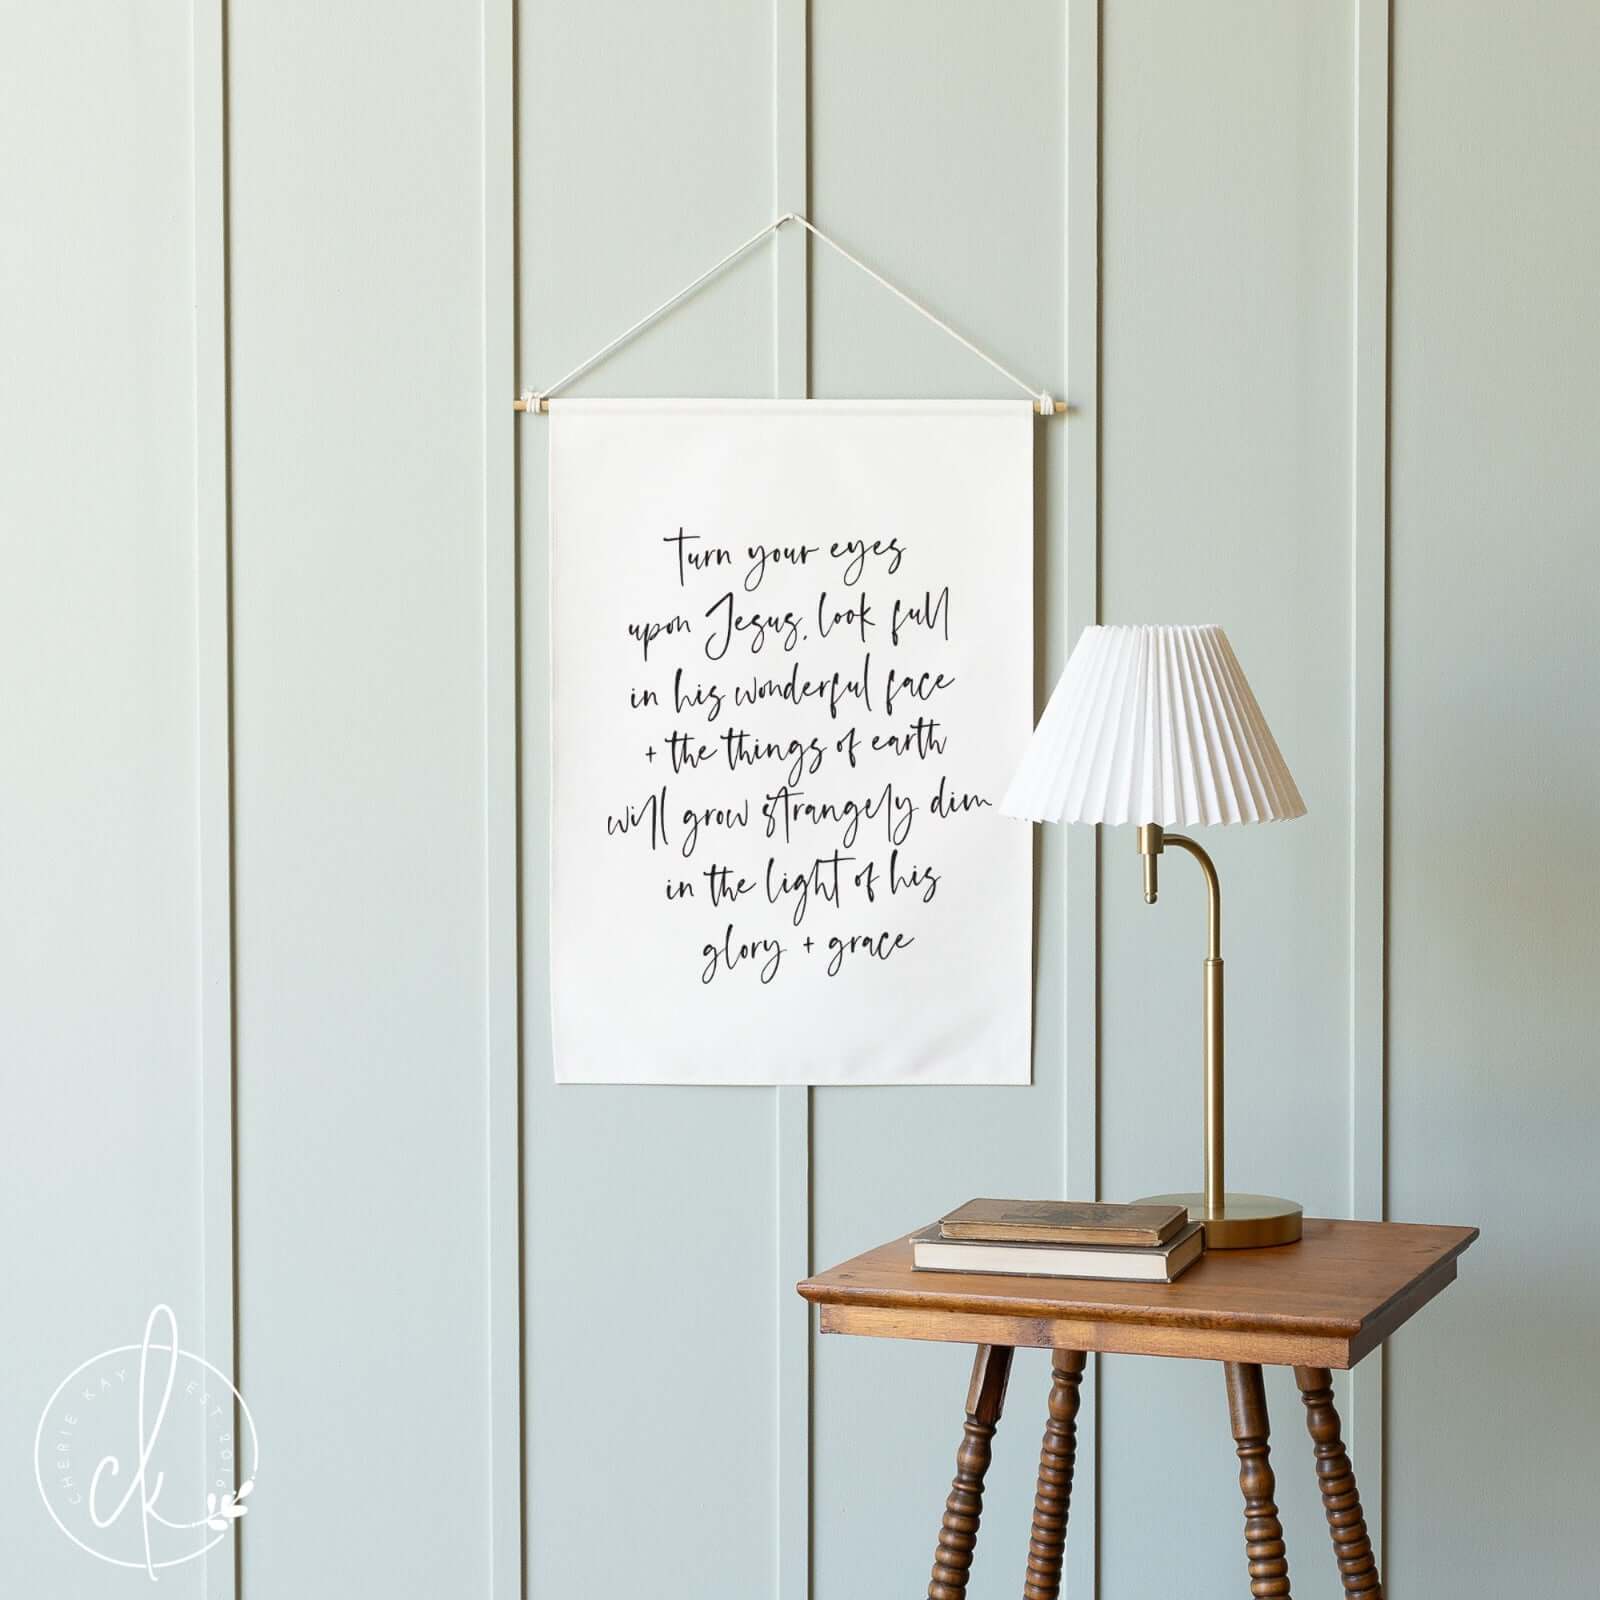 Turn your eyes
upon Jesus, look full
in his wonderful face
+ the things of earth
will grow strangely dim
in the light of his
glory + grace
CHERIE KAY EST 2016
ck